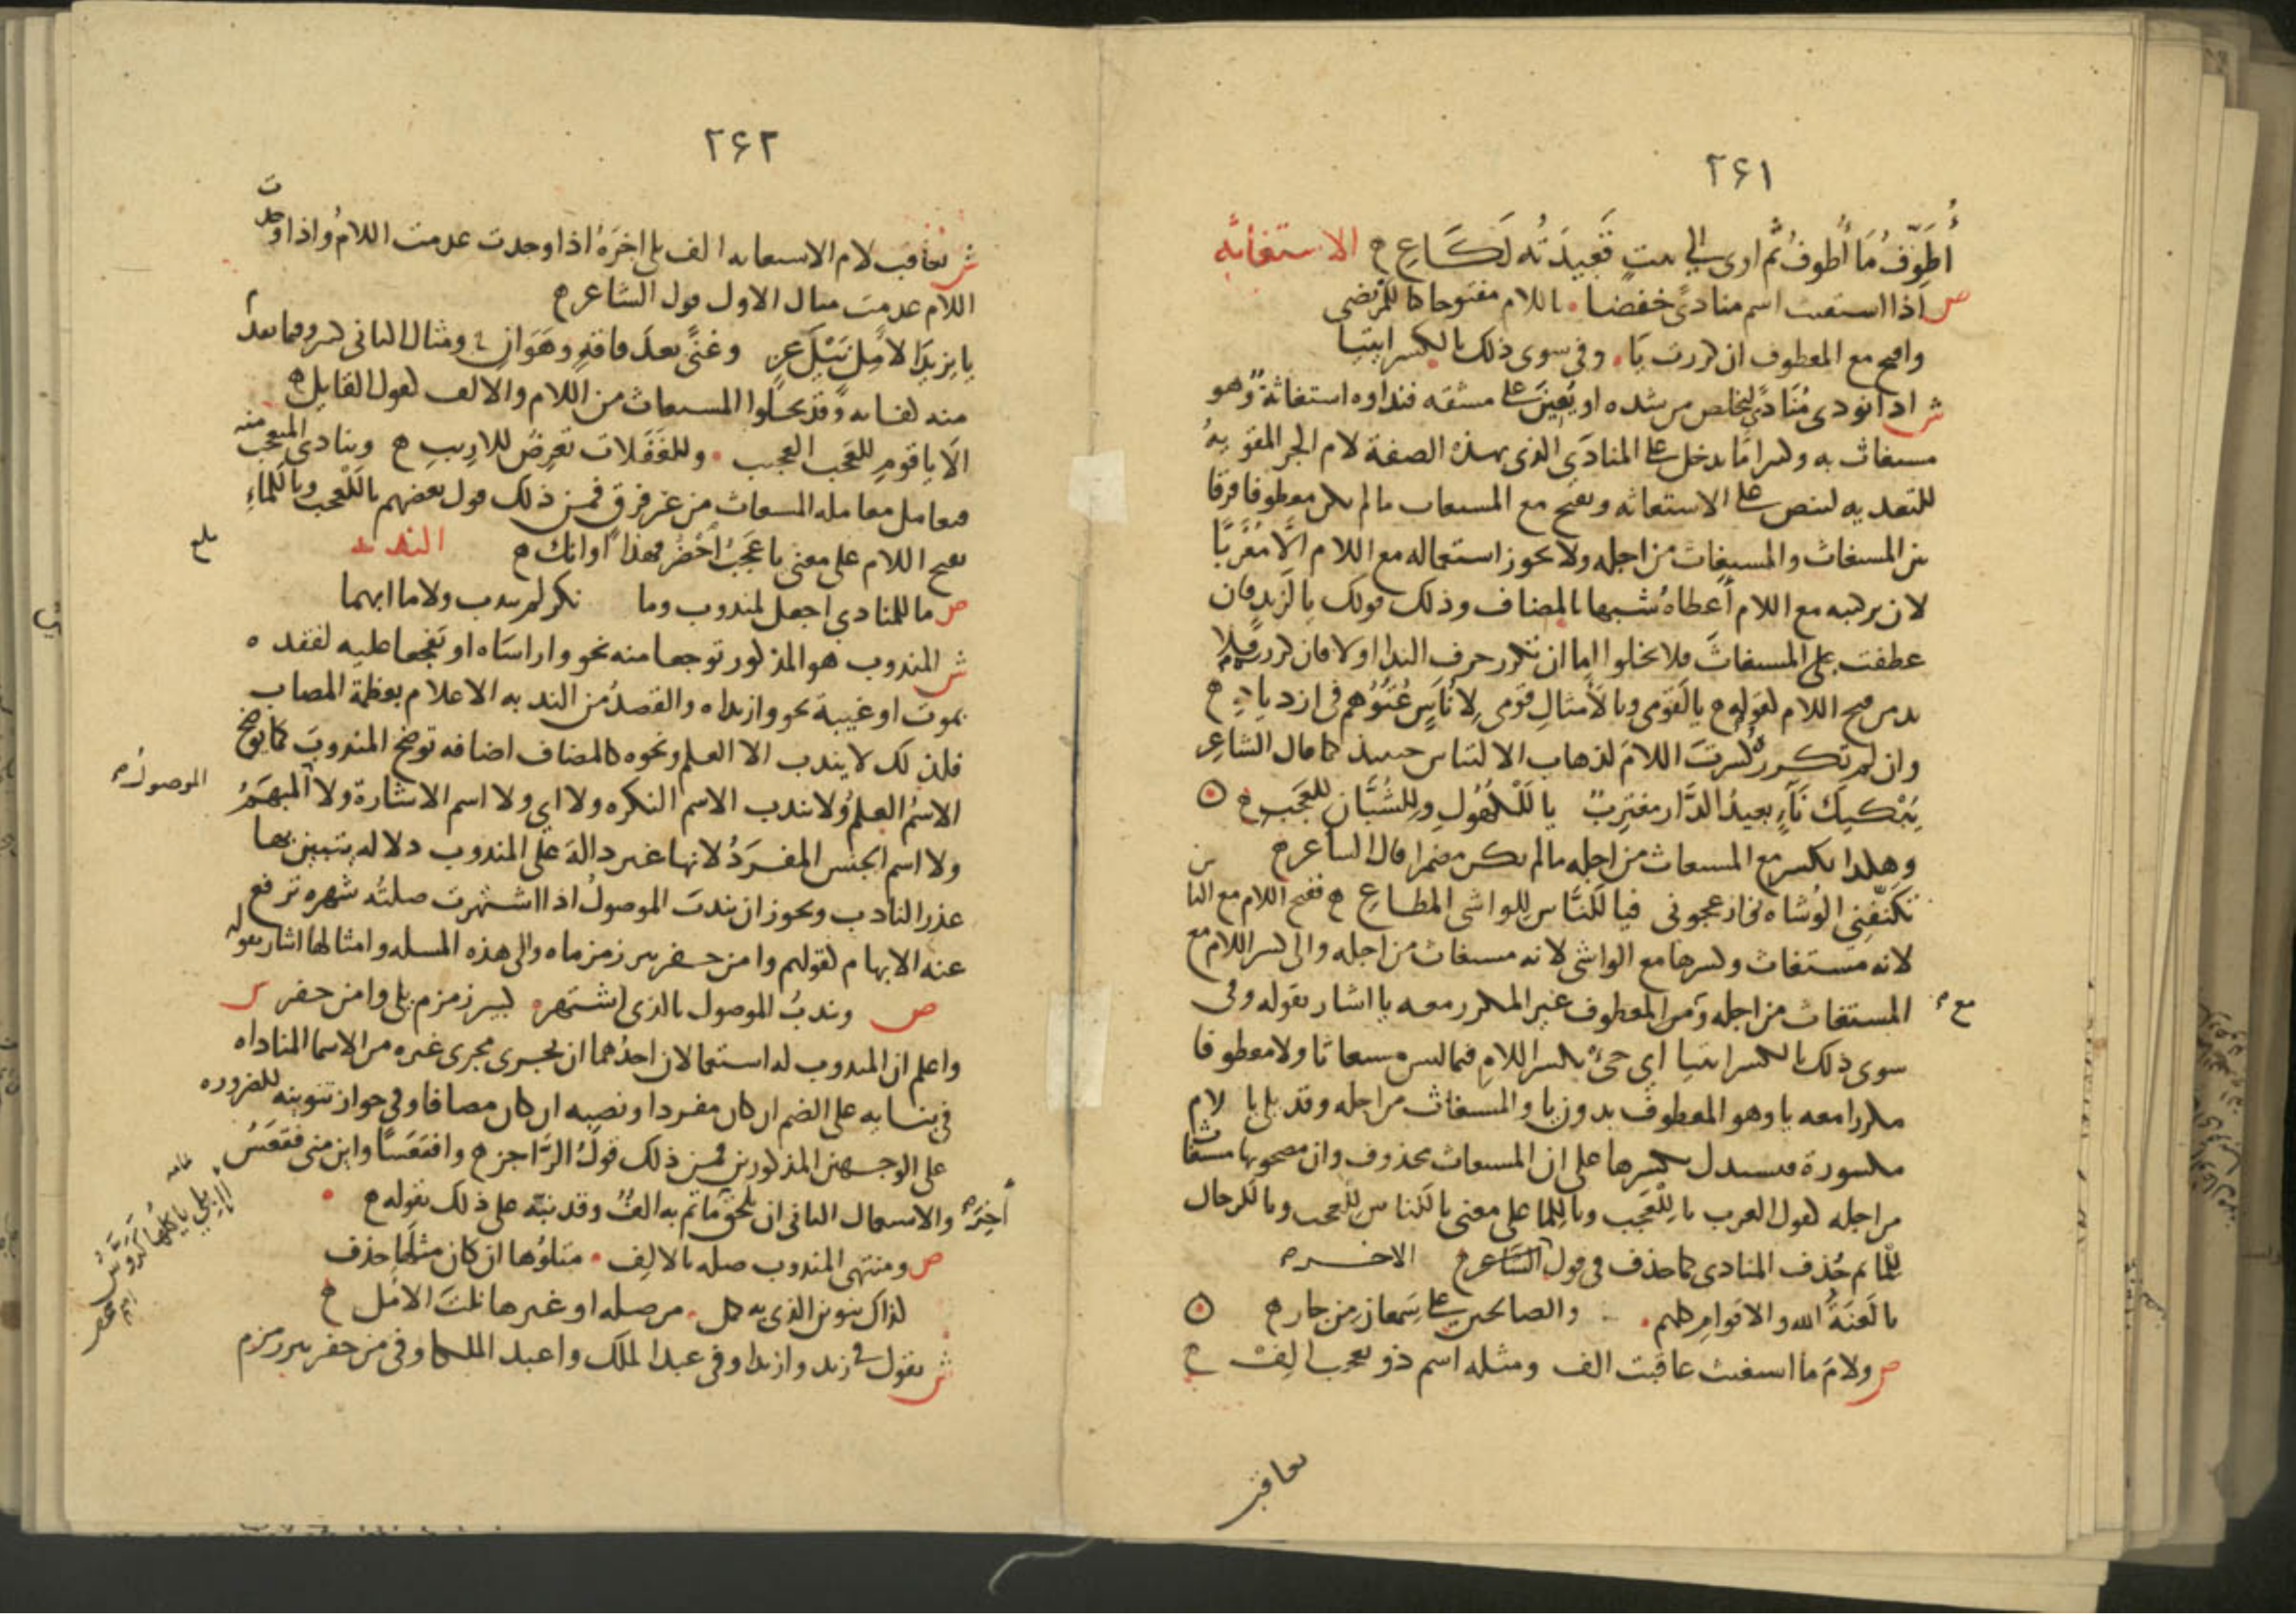 ٢٦١
أُطَوِّفُ مَا أُطَوِّفُ ثُمَّ اوى الى بيت قَعِيدَتُه لَكَاعِ ح الاستغاثه
ص اذا استغيث اسم منادىً خفضا باللام مفتوحا كيا للمرتضى
وافتح مع المعطوف ان كررت يَا وفى سوى ذلك بالكسر ايتيا
ش اذا نودى مُنَادىً ليخلص من شده او يُعِينَ على مشقه فنداوه استغاثة وهو
مستغاث به وكثيرا ما يدخل على المنادَى الذى بهذه الصفة لام الجر المقويه
للتعديه لتنص على الاستغاثه وتفتح مع المستغاث ما لم يكن معطوفا فرقا
بين المستغاث والمستغاث من اجله ولا يجوز استعماله مع اللام الا مُعْرَبًا
لان تركيبه مع اللام أعطاهُ شبها بالمضاف وذلك قولك يا لَزيد فان
عطفت على المستغاث فلا يخلوا اما ان تكرر حرف الندا اولا فان كررت فلا
بد من فتح اللام كقوله ح يا لَقومى ويا لَأمثالِ قَومى لِأُنَاسٍ عُتُوُّهم فى ازديادِ ح
وان لم تكرر كُسِرَتِ اللامُ لذهاب الالتباس حينيذ كما قال الشاعر
يَبْكيكَ نَآءٍ بعيدُ الدَّار مغتربٌ يا لَلْكُهُولِ ولِلشُّبَّان لِلعَجَبِ ح
وهكذا تكسر مع المستغاث من اجله ما لم يكن مضمرا قال الشاعر ح
تَكَنَّفَنِى الوُشاه فازعجونى فيا لَلنَّاسِ لِلواشى المطاعِ ح ففتح اللام مع الناس
لانه مستغاث وكسرها مع الواشى لانه مستغاث من اجله والى كسر اللام مع
المستغاث من اجله ومع المعطوف غير المكرر معه يا اشار بقوله وفى
مع
سوى ذلك بالكسر ايتيا اى جئْ بكسر اللام فيما ليس مستغاثا ولا معطوفا
مكررا معه يا وهو المعطوف بدون يا والمستغاث من اجله وقد يلى يا لام
مكسورة فيستدل بكسرها على ان المستغاث محذوف وان مصحوبها مستغاث
من اجله كقول العرب يا لِلْعَجَبِ ويا لِلما على معنى يا لَلناس لِلعجب ويا لَلرجال
لِلْما ثم حُذف المنادى كما حذف فى قول الشاعر ح الاخر
يا لَعنَةُ الله والاقوامِ كلهم والصالحين على سَمعان مِن جار ح
ص ولامَ ما استغيث عاقبت الف ومثله اسم ذو تعجب الِفْ ح
تعاقب
٢٦٢
ش تعاقب لام الاستغاثه الف تلى اخرَهُ اذا وجدت عدمت اللامُ واذا وجدت
اللام عدمت مثال الاول قول الشاعر ح
يا يزيدَا لآمِلٍ نَيْلَ عِزٍّ وغنًى بعدَ فاقةٍ وهَوَانِ ومثال الثانى كثير وفيما تقدم
منه كفايه وقد يخلوا المستغاث من اللام والالف كقول القايل ح
الَا يا قَومِ للعَجَب العجيب وللغفَلات تَعرِضُ للاريبِ ح وينادى المتعجب منه
فيعامل معامله المستغاث من غير فرق فمن ذلك قول بعضهم يا لَلْعجب ويا لَلماءِ
بفتح اللام على معنى يا عَجَبُ احْضُر فهذا اوانك ح الندبه
بلغ
ص ما للمنادى اجعل لمندوب وما نكر لم يندب ولا ما ابهما
ش المندوب هو المذكور توجعا منه نحو واراسَاه او تفجعا عليه لفقده
بموت او غيبة نحو وازيداه والقصدُ من الندبه الاعلام بعظمة المصاب
فلذلك لا يندب الا العلم ونحوه كالمضاف اضافه توضح المندوبَ كما يوضح
الاسمُ العلمُ ولا يندب الاسم النكره ولا اى ولا اسم الاشارة ولا المبهمُ
الموصول
ولا اسم الجنس المفرَدُ لانها غير دالة على المندوب دلاله يتبين بها
عذر النادب ويجوز ان يندبَ الموصولُ اذا اشتهرت صلتُه شهره ترفع
عنه الابهام كقولهم وا من حفر بير زمزماه والى هذه المسله وامثالها اشار بقوله
ص ويندبُ الموصول بالذى اشتهر كبير زمزم يلى وا من حفر ش
واعلم ان المندوب له استعمالان احدُهما ان يجرى مجرى غيره من الاسما المناداه
فى بنايه على الضم ان كان مفردا ونصبه ان كان مضافا وفى جواز تنوينه للضروره
على الوجهين المذكورين فمن ذلك قولُ الرَّاجز ح وافقعَسًا واين منى فقعَسُ
أ إِبِلى ياكلُها كَرَوَّسُ
اخِرَه والاستعمال الثانى ان يلحق ما تم به الفٌ وقد نبّه على ذلك بقوله ح
ص ومنتهى المندوب صله بالالِف متلوُها ان كان مثلَها حذف
كذاك تنوين الذى به كمل من صله او غيرها نلتَ الامَل ح
ش تقول فى زيد وازيدا وفى عبد الملك واعبد الملكا وفى من حفر بير زمزم